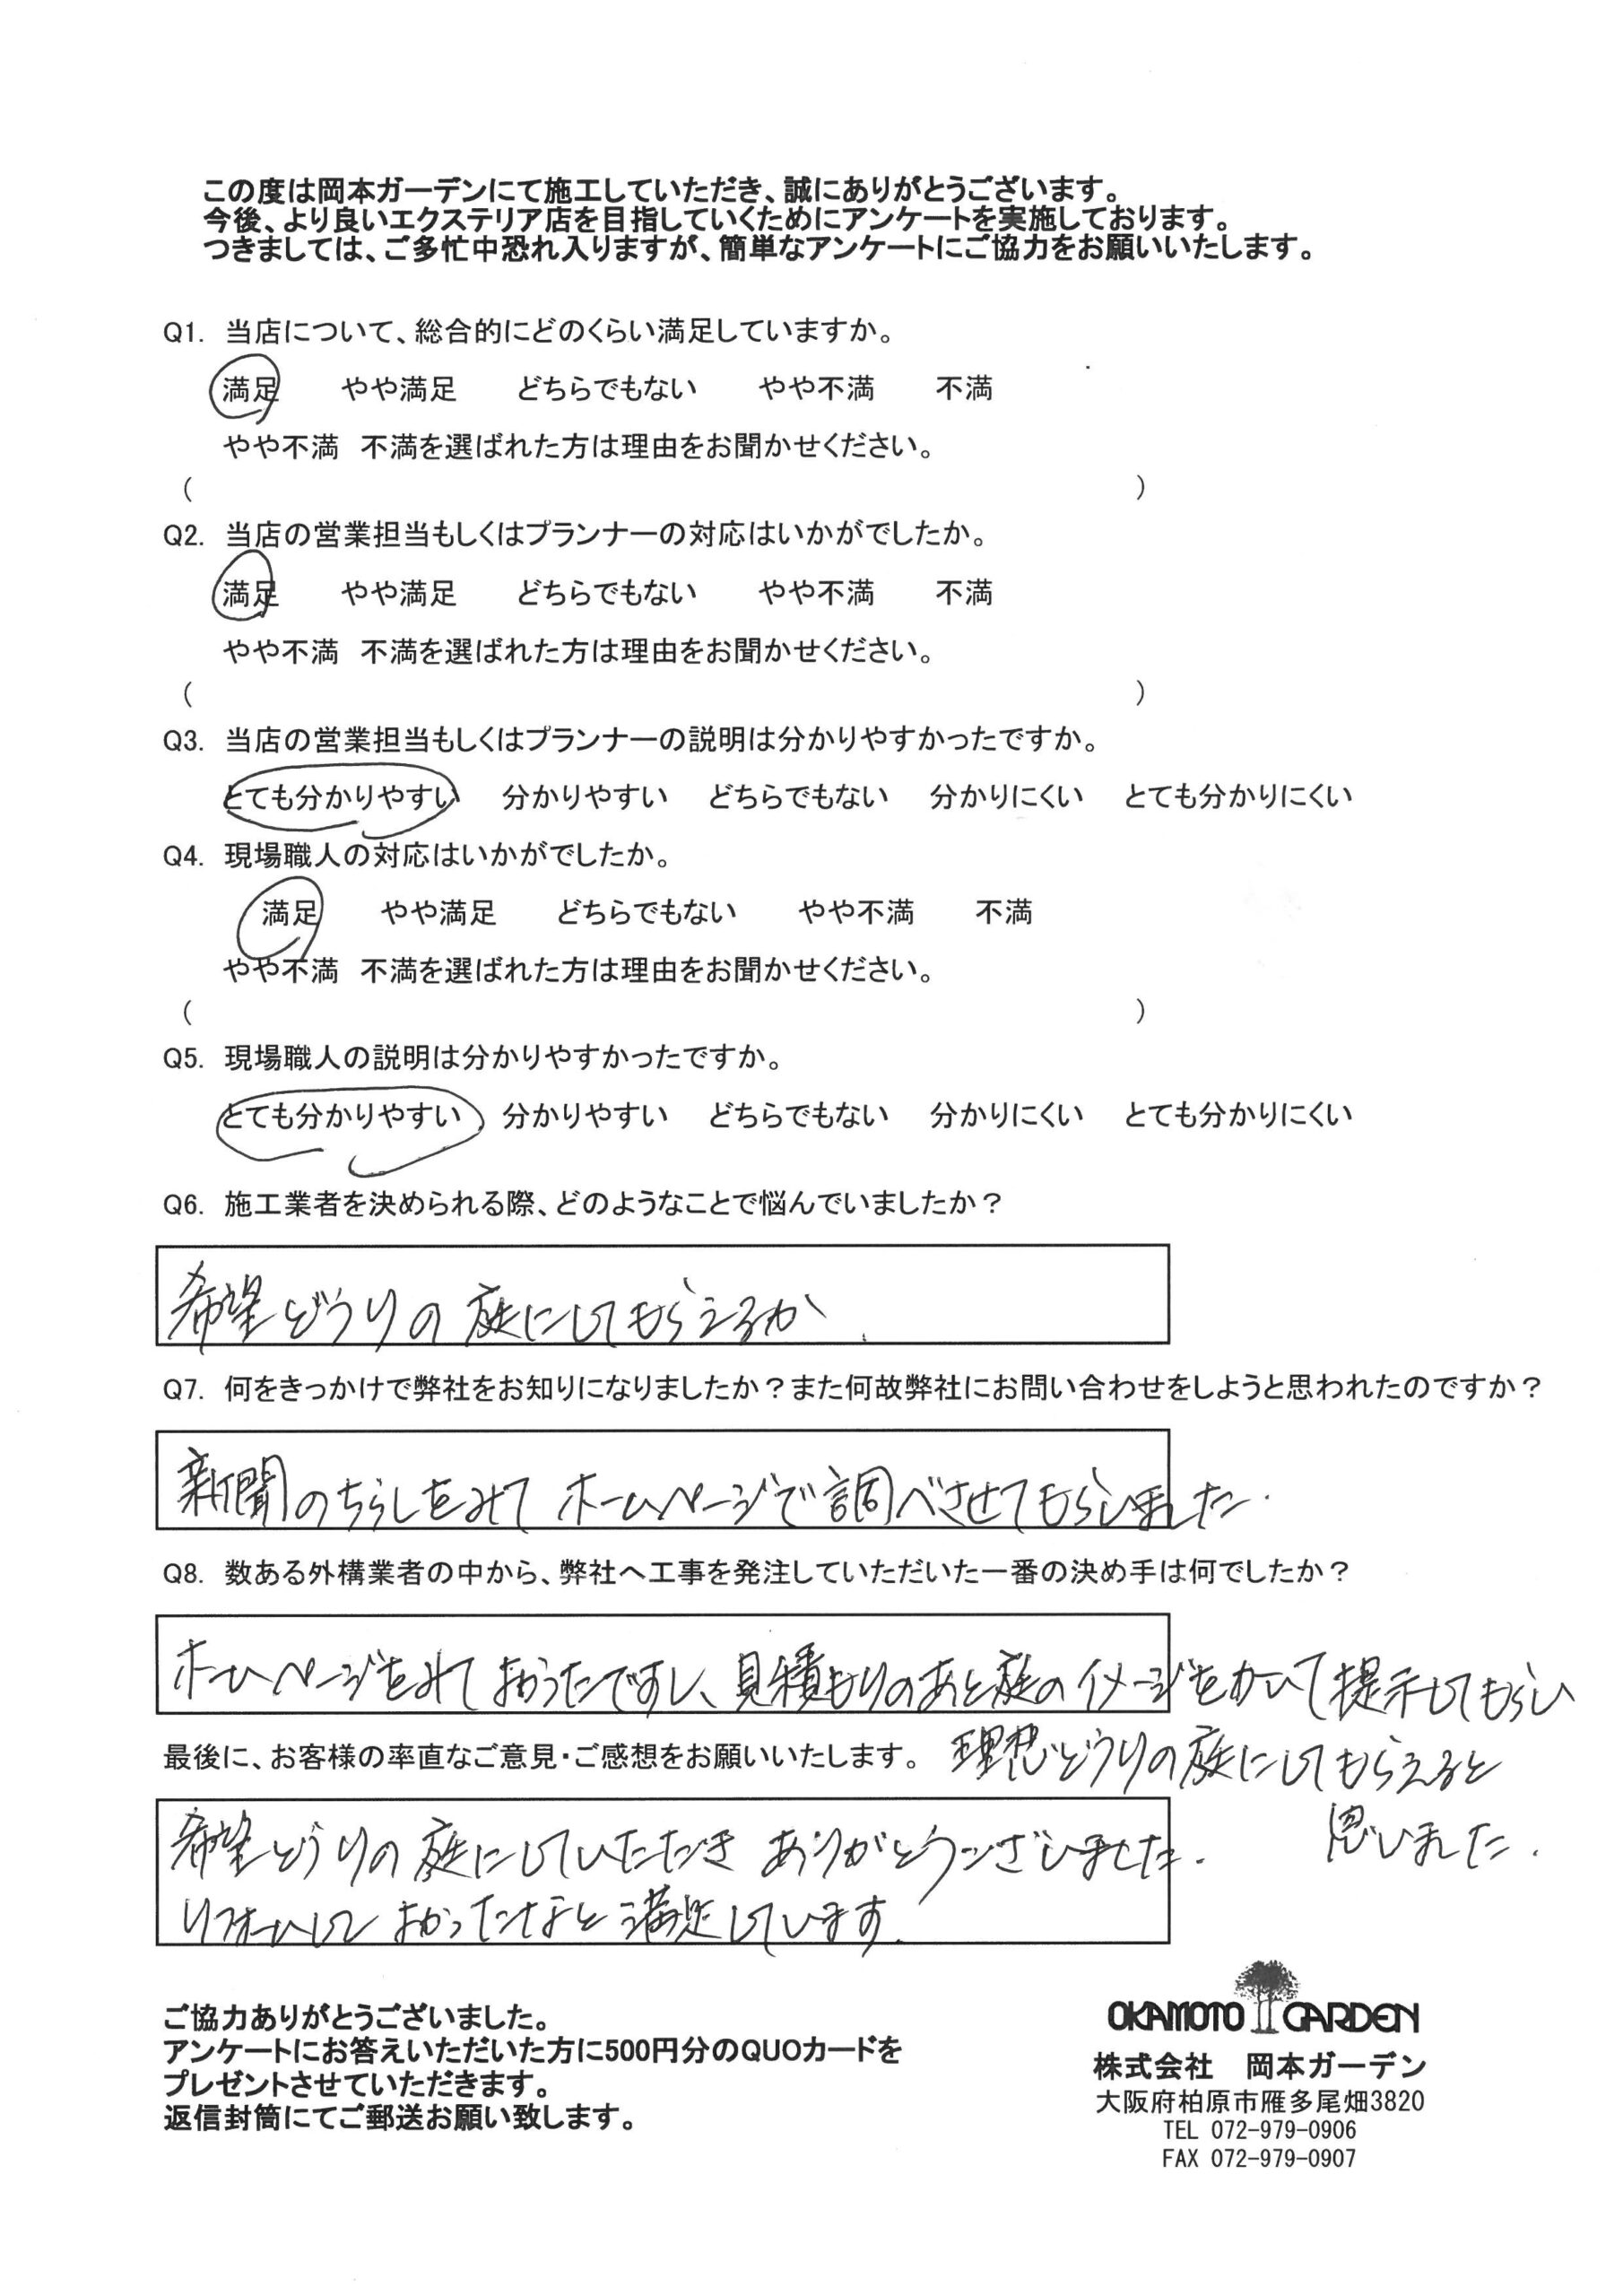 この度は岡本ガーデンにて施工していただき、誠にありがとうございます。
今後、より良いエクステリア店を目指していくためにアンケートを実施しております。
つきましては、ご多忙中恐れ入りますが、簡単なアンケートにご協力をお願いいたします。
Q1. 当店について、総合的にどのくらい満足していますか。
満足 やや満足 どちらでもない やや不満 不満
やや不満 不満を選ばれた方は理由をお聞かせください。
( )
Q2. 当店の営業担当もしくはプランナーの対応はいかがでしたか。
満足 やや満足 どちらでもない やや不満 不満
やや不満 不満を選ばれた方は理由をお聞かせください。
( )
Q3. 当店の営業担当もしくはプランナーの説明は分かりやすかったですか。
とても分かりやすい 分かりやすい どちらでもない 分かりにくい とても分かりにくい
Q4. 現場職人の対応はいかがでしたか。
満足 やや満足 どちらでもない やや不満 不満
やや不満 不満を選ばれた方は理由をお聞かせください。
( )
Q5. 現場職人の説明は分かりやすかったですか。
とても分かりやすい 分かりやすい どちらでもない 分かりにくい とても分かりにくい
Q6. 施工業者を決められる際、どのようなことで悩んでいましたか？
希望どうりの庭にしてもらえるか、
Q7. 何をきっかけで弊社をお知りになりましたか？また何故弊社にお問い合わせをしようと思われたのですか？
新聞のちらしをみてホームページで調べさせてもらいました.
Q8. 数ある外構業者の中から、弊社へ工事を発注していただいた一番の決め手は何でしたか？
ホームページをみてよかったですし、見積もりのあと庭のイメージをかいて提示してもらい
理想どうりの庭にしてもらえると
思いました.
最後に、お客様の率直なご意見・ご感想をお願いいたします。
希望どうりの庭にしていただき ありがとうございました.
リフォームして よかったなと満足しています.
ご協力ありがとうございました。
アンケートにお答えいただいた方に500円分のQUOカードを
プレゼントさせていただきます。
返信封筒にてご郵送お願い致します。
OKAMOTO GARDEN
株式会社 岡本ガーデン
大阪府柏原市雁多尾畑3820
TEL 072-979-0906
FAX 072-979-0907